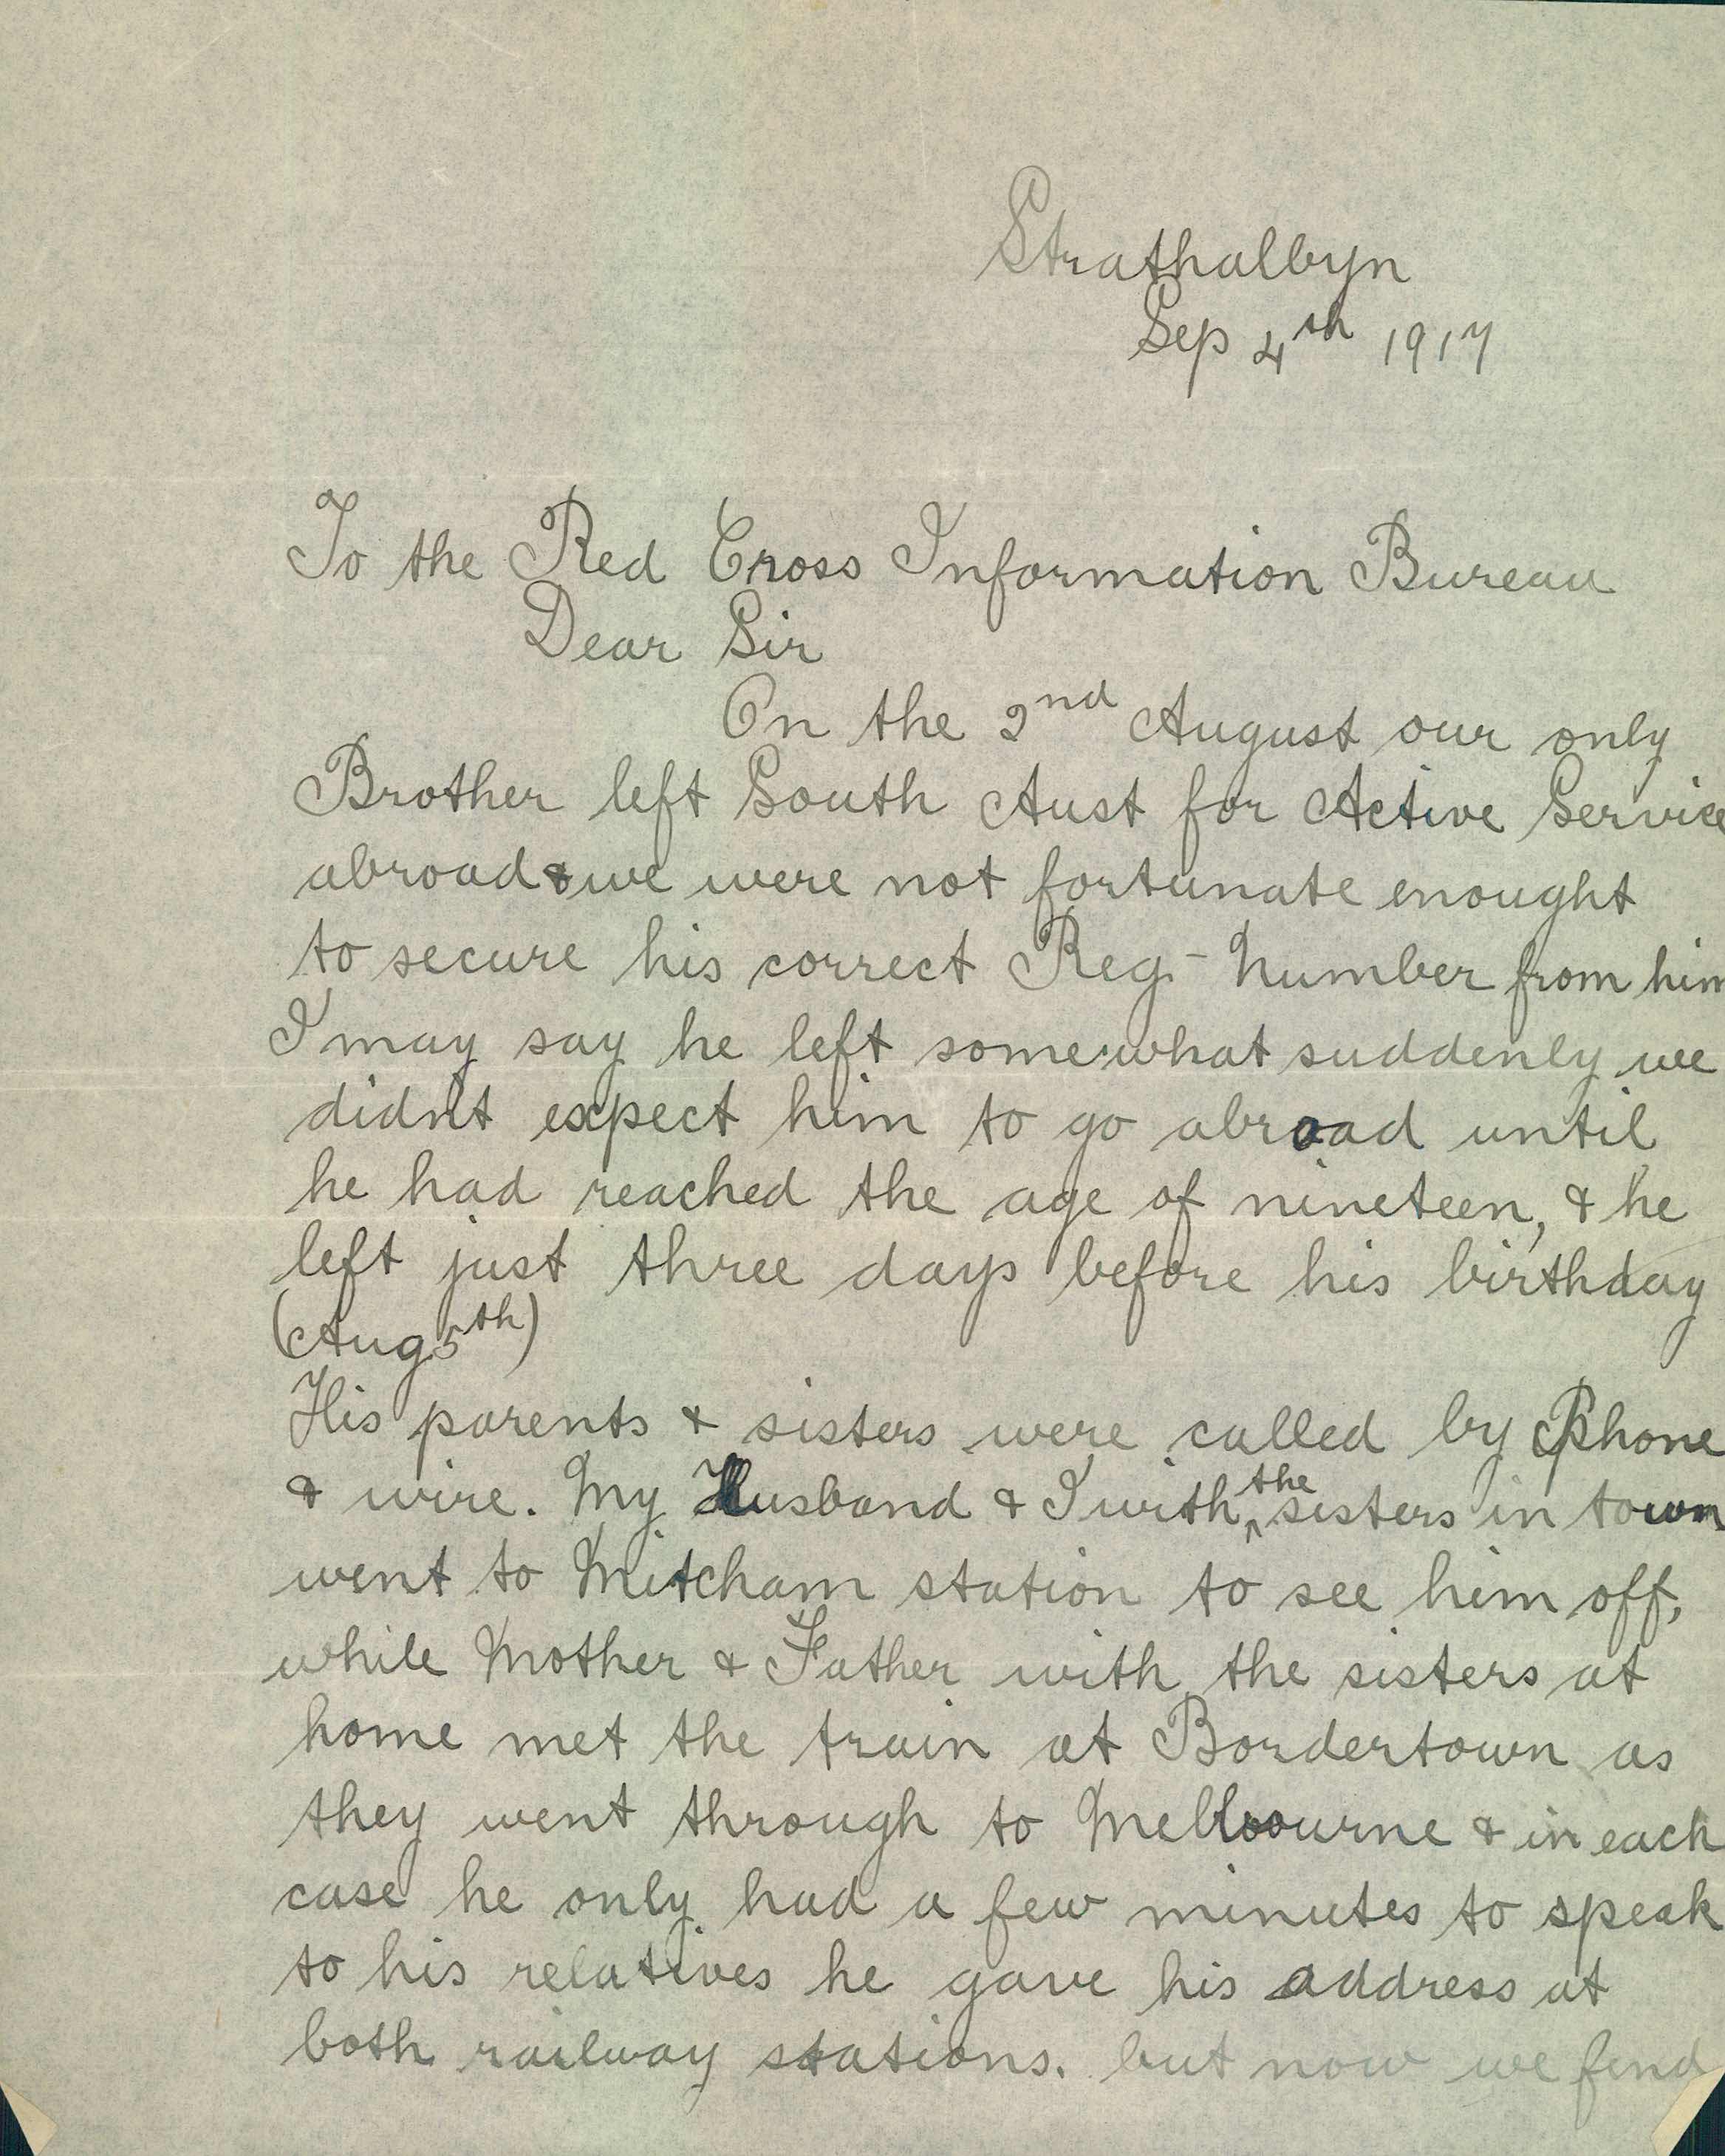 Strathalbyn
Sep 4th 1917
To the Red Cross Information Bureau
Dear Sir
On the 2nd August our only
Brother left South Aust for Active Service
abroad & we were not fortunate enought
to secure his correct Reg- Number from him
I may say he left somewhat suddenly we
didn't expect him to go abroad until
he had reached the age of nineteen, & he
left just three days before his birthday
(Aug 5th)
His parents & sisters were called by Phone
& wire. My Husband & I with the sisters in town
went to Mitcham station to see him off,
while Mother & Father with the sisters at
home met the train at Bordertown as
they went through to Melbourne & in each
case he only had a few minutes to speak
to his relatives he gave his address at
both railway stations. but now we find